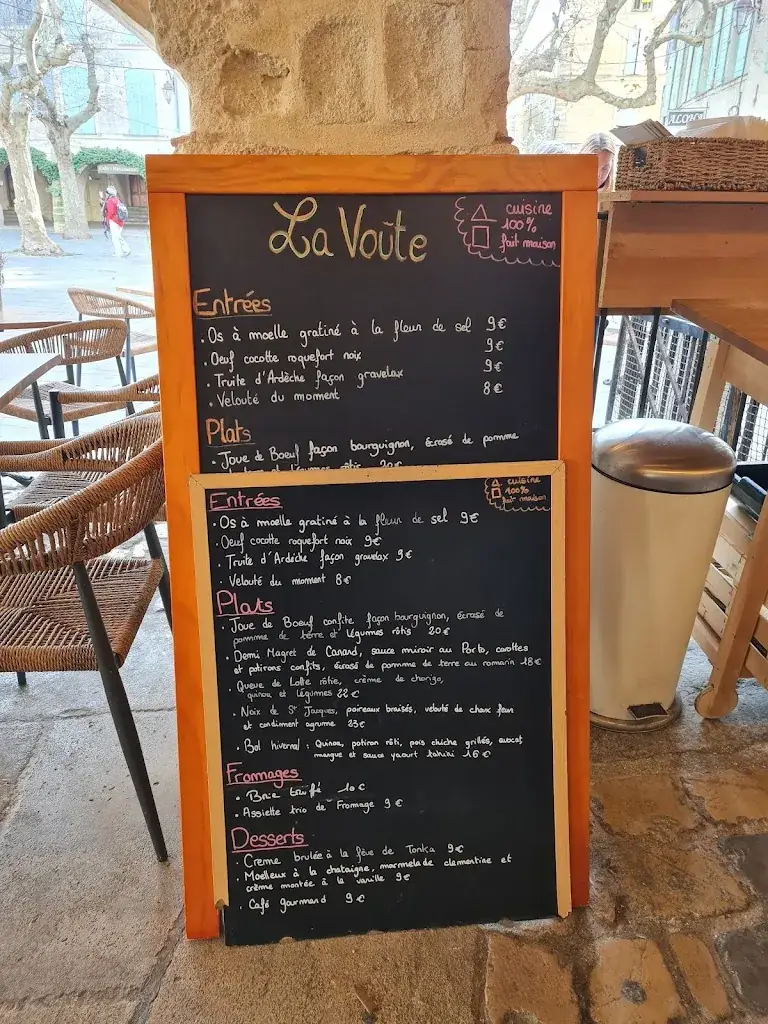 ALOHA
La Voûte
cuisine
100%
fait maison
Entrées
. Os à moelle gratiné à la fleur de sel 9€
. Oeuf cocotte roquefort noix 9€
. Truite d'Ardèche façon gravelax 9€
. Velouté du moment 8€
Plats
. Joue de Boeuf façon bourguignon, écrasé de pomme
de terre et légumes rôtis 20€
cuisine
100%
fait maison
Entrées
. Os à moelle gratiné à la fleur de sel 9€
. Oeuf cocotte roquefort noix 9€
. Truite d'Ardèche façon gravelax 9€
. Velouté du moment 8€
Plats
. Joue de Boeuf confite façon bourguignon, écrasé de
pomme de terre et légumes rôtis 20€
. Demi Magret de Canard, sauce miroir au Porto, carottes
et potirons confits, écrasé de pomme de terre au romarin 18€
. Queue de Lotte rôtie, crème de chorizo,
quinoa et légumes 22€
. Noix de St Jacques, poireaux braisés, velouté de choux fleur
et condiment agrume 23€
. Bol hivernal : Quinoa, potiron rôti, pois chiche grillés, avocat,
mangue et sauce yaourt tahini 16€
Fromages
. Brie truffé 10€
. Assiette trio de Fromage 9€
Desserts
. Creme brulée à la fève de Tonka 9€
. Moelleux à la chataigne, marmelade clementine et
crème montée à la vanille 9€
. Café gourmand 9€